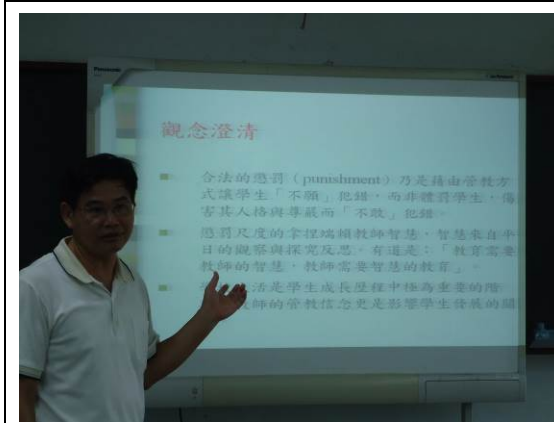 Panasonic
觀念澄清
合法的懲罰（punishment）乃是藉由管教方
式讓學生「不願」犯錯，而非體罰學生，傷
害其人格與尊嚴而「不敢」犯錯。
懲罰尺度的拿捏端賴教師智慧，智慧來自平
日的觀察與探究反思。有道是：「教育需要
教師的智慧，教師需要智慧的教育」。
活是學生成長歷程中極為重要的階
師的管教信念更是影響學生發展的關